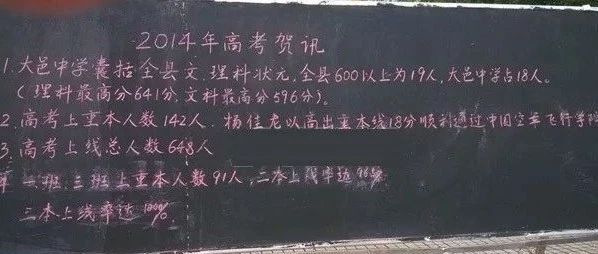 2014年高考贺讯
1.大邑中学囊括全县文.理科状元,全县600以上为19人,大邑中学占18人。
(理科最高分641分,文科最高分596分)。
2.高考上重本人数142人.杨佳龙以高出重本线18分顺利通过中国空军飞行学院
3.高考上线总人数648人
二班三班上重本人数91人,二本上线率达
三本上线率达100%.